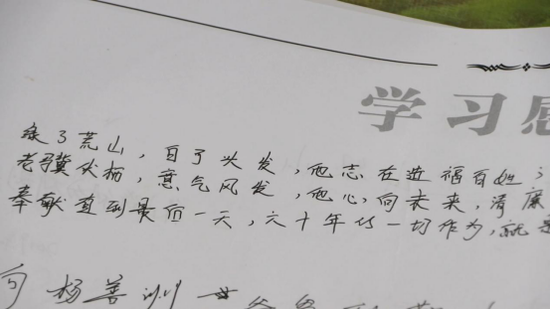 学习
绿了荒山，白了头发，他志在造福百姓；
老骥伏枥，意气风发，他心向未来，清廉
奉献直到最后一天，六十年的一切作为，就是
向杨善洲